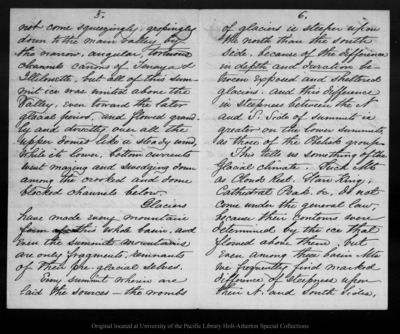 5.
not come squeezingly, gropingly
down to the main valley by
the narrow, angular, tortuous
channels canons of Tenaya &
Illilouette, but all of this sum-
mit ice was united above the
Valley, even toward the later
glacial period, and flowed grand-
ly and directly over all the
upper domes like a steady wind,
while its lower, bottom currents
went mazing and swedging down
among the crooked and dome
blocked channels below.
Glaciers
have made every mountain
form of this whole basin, and
even the summit mountains
are only fragments, remnants
of their pre-glacial selves.
Every summit wherein are
laid the sources — the wombs
6.
of glaciers is steeper upon
the north than the south
side, because of the difference
in depth and duration be-
tween exposed and sheltered
glaciers. And this difference
in steepness between the N
and S. side of summits is
greater on the lower summits,
as those of the Obelisk group.
This tells us something of the
glacial climate. Such Mts
as Clouds Rest, Starr King,
Cathedral Peak &c, do not
come under the general law,
because their contours were
determined by the ice that
flowed above them, but
even among these basin Mts
we frequently find marked
difference of steepness upon
their N. and south sides,
Original located at University of the Pacific Library Holt-Atherton Special Collections